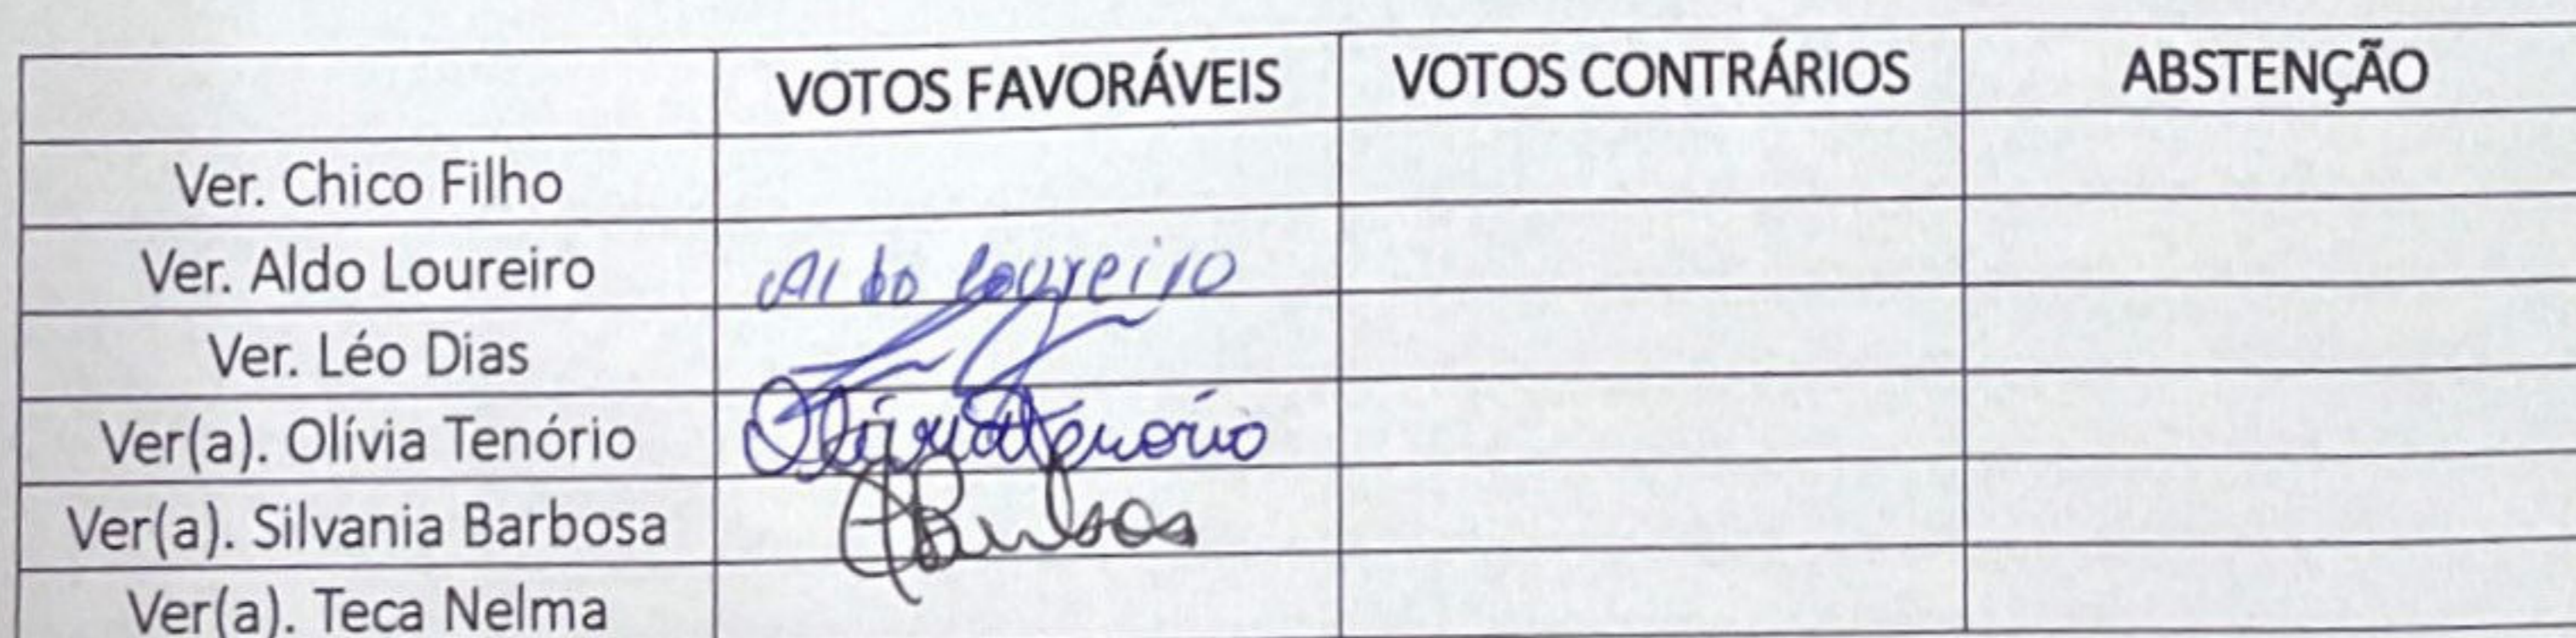 VOTOS FAVORÁVEIS VOTOS CONTRÁRIOS ABSTENÇÃO
Ver. Chico Filho
Ver. Aldo Loureiro Aldo Loureiro
Ver. Léo Dias
Ver(a). Olívia Tenório Olívia Tenório
Ver(a). Silvania Barbosa Barbosa
Ver(a). Teca Nelma